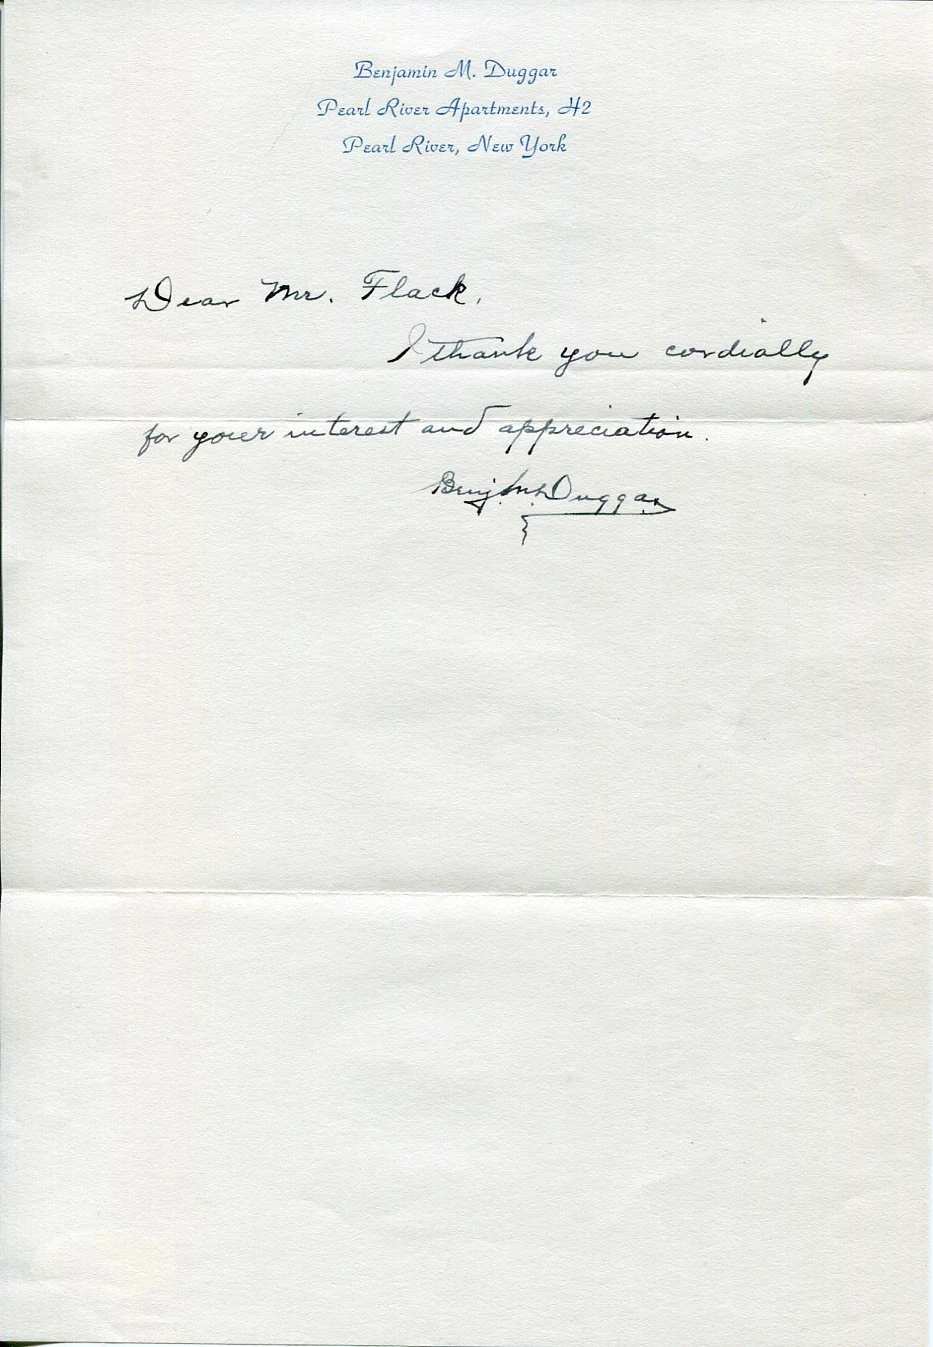 Benjamin M. Duggar
Pearl River Apartments, H2
Pearl River, New York
Dear Mr. Flack,
I thank you cordially
for your interest and appreciation.
Benj. M. Duggar